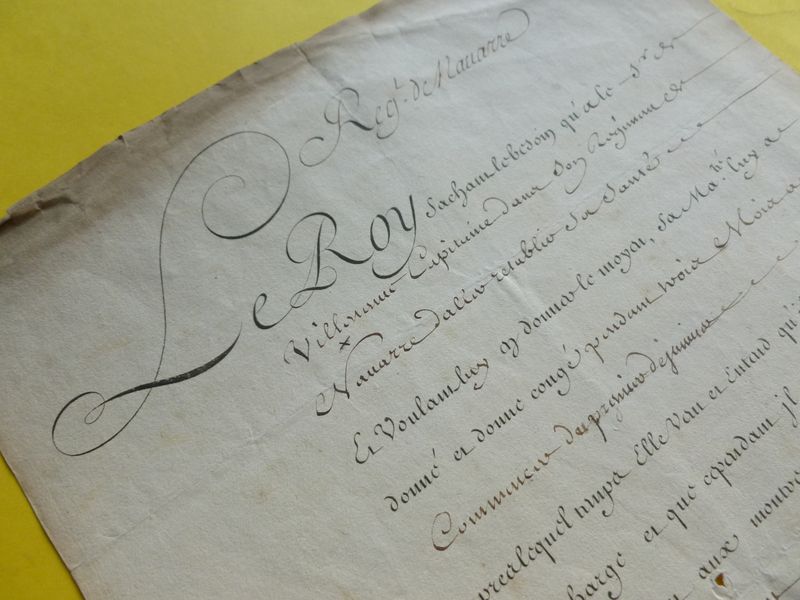 Regt. de Nauarre
Le Roy Sachant le besoin qu'a le Sr. de
Villeneuue Capitaine dans son Régiment de
Nauarre d'aller rétablir sa santé
Et Voulant luy y donner le moyen, Sa Maté. luy a
donné et donne congé pendant trois Mois a
Commencer du premier de januier
lequel temps Elle Veut et Entend qu'
charge et que cependant jl
aux montres